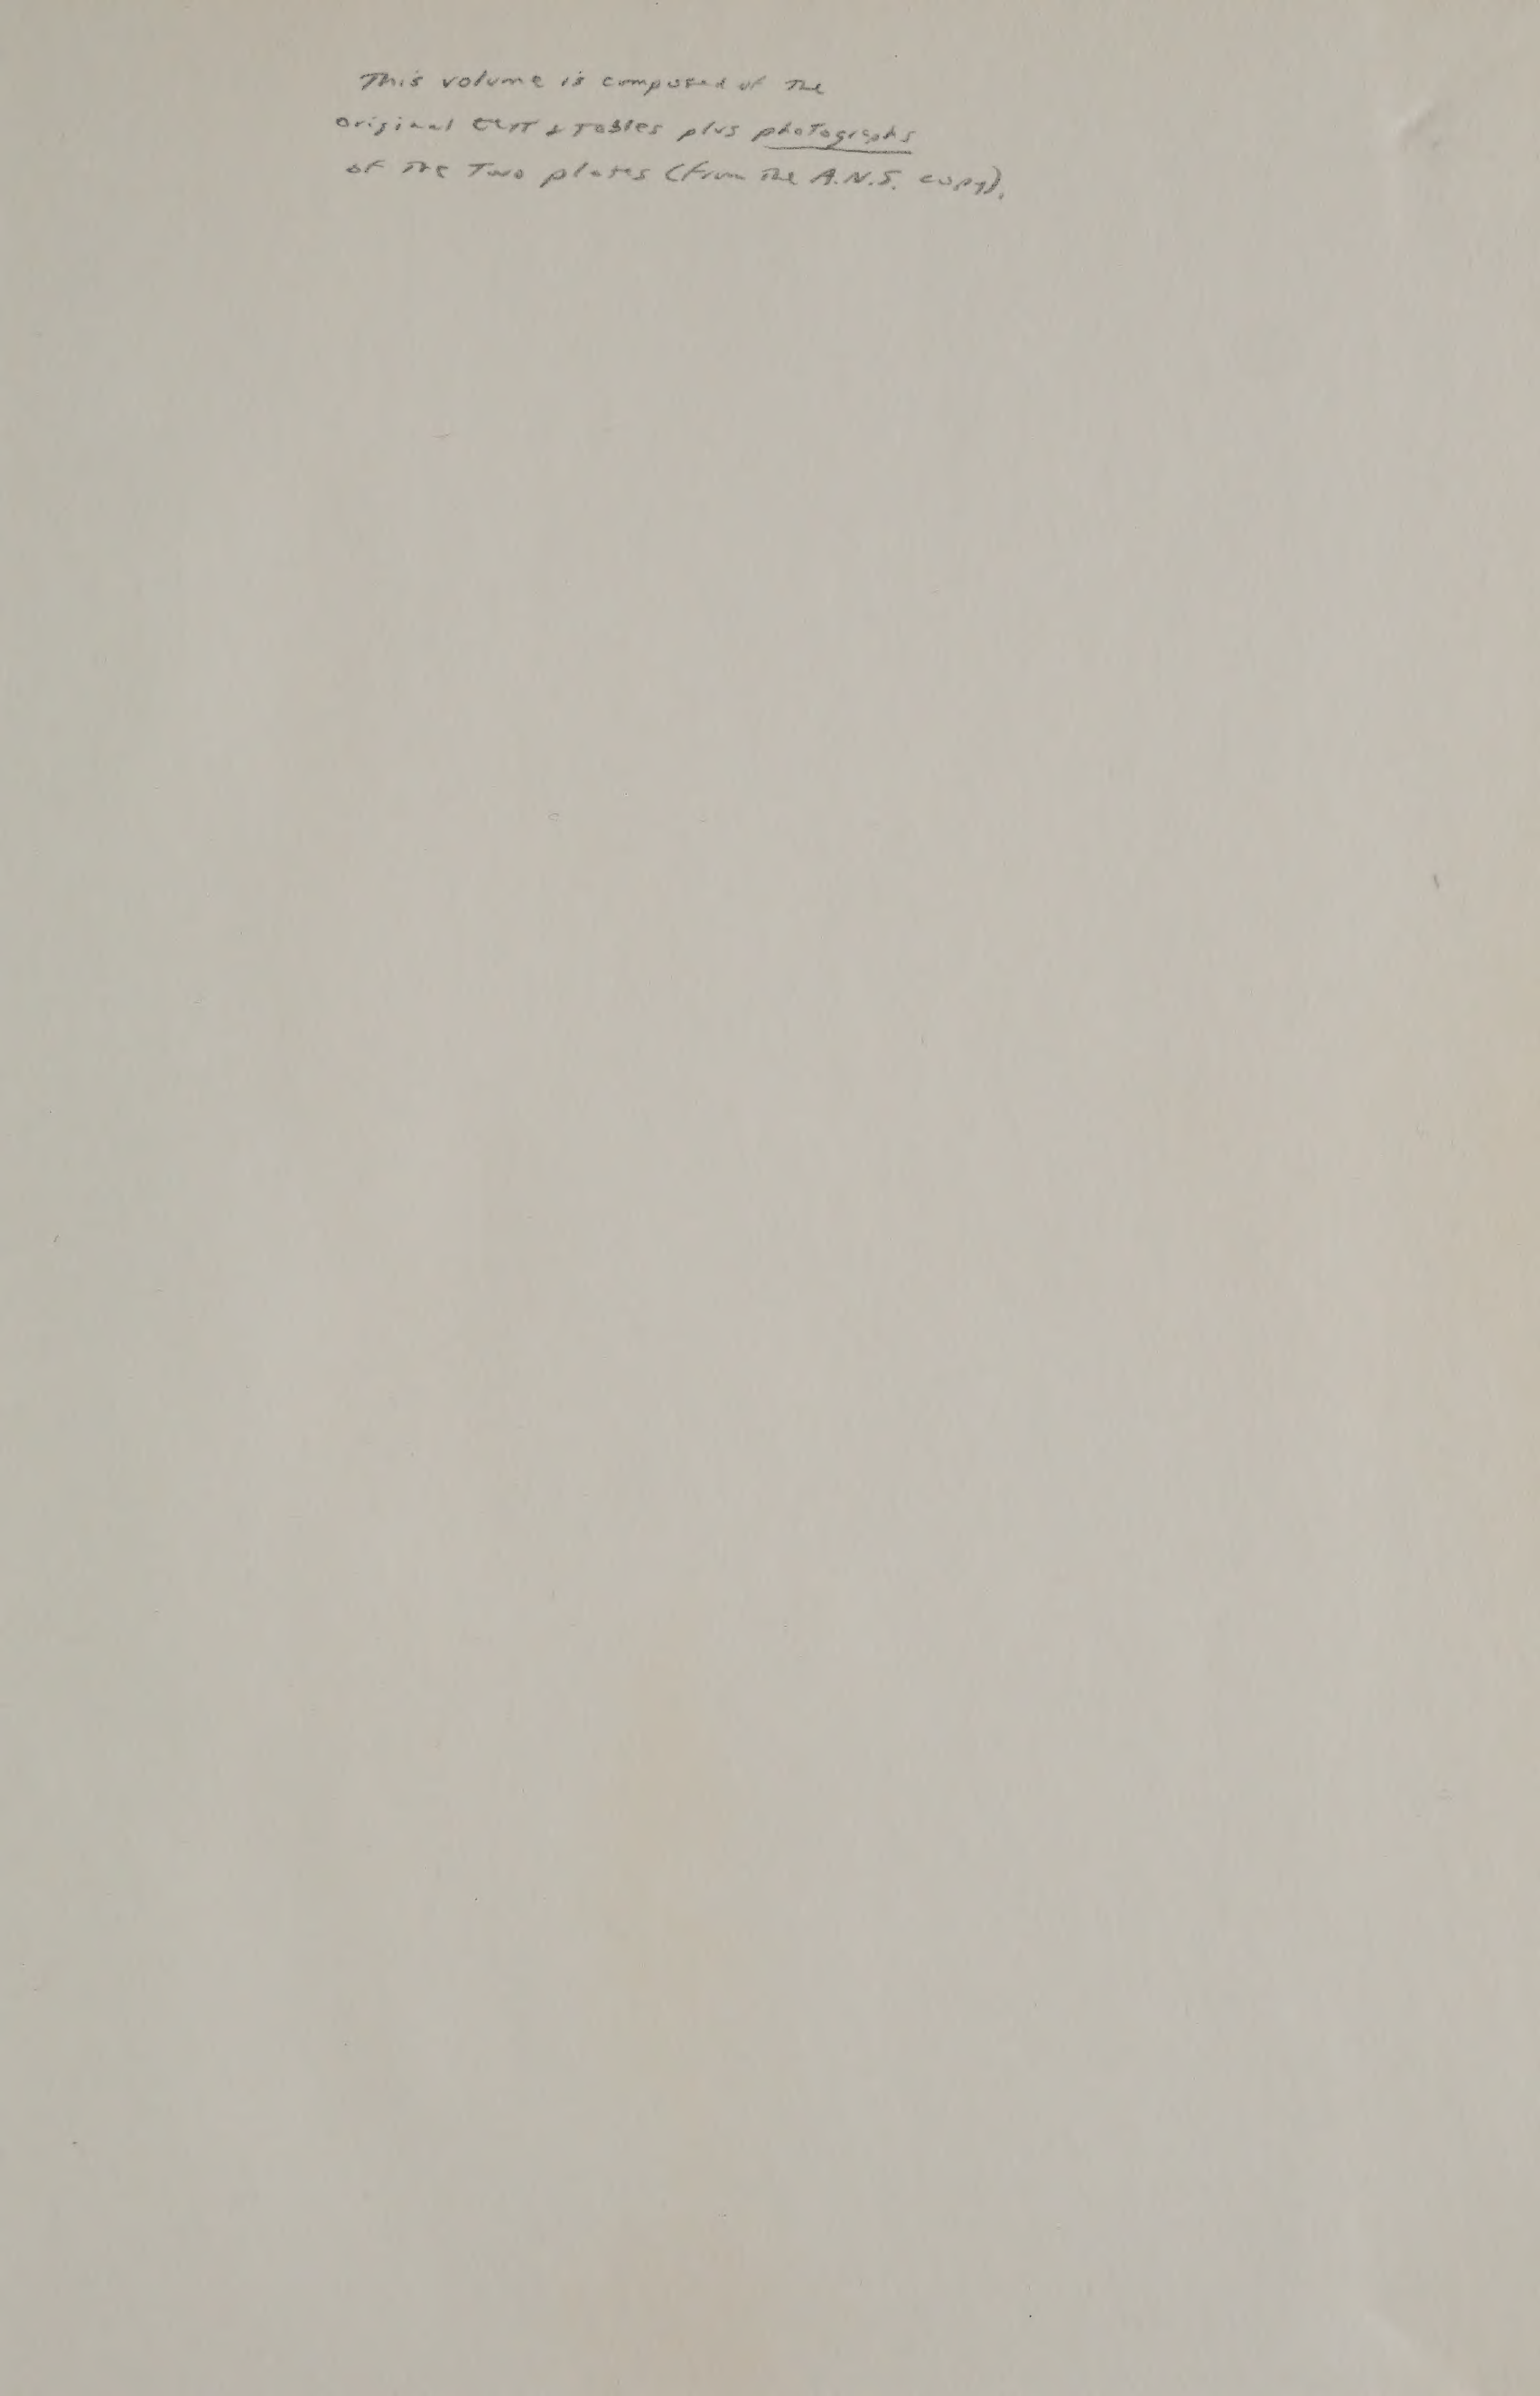 This volume is composed of the
original text & tables plus photographs
of the two plates (from the A.N.S. copy).